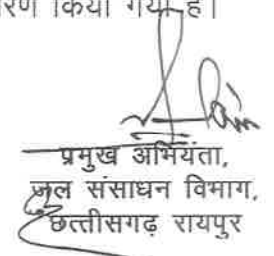 किया गया है।
प्रमुख अभियंता,
जल संसाधन विभाग,
छत्तीसगढ़ रायपुर